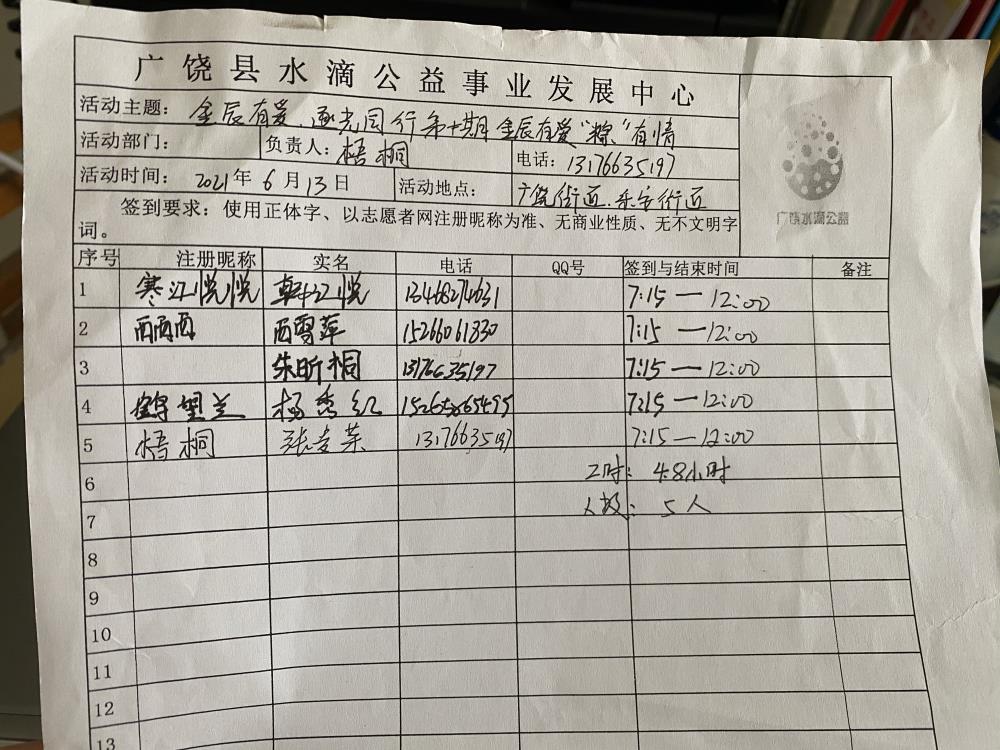 广饶县水滴公益事业发展中心
活动主题：金辰有爱.逐光同行第十期 金辰有爱"粽"有情
活动部门： 负责人：梧桐 电话：13176635197
活动时间：2021年6月13日 活动地点：广饶街道.乐安街道
广饶水滴公益
签到要求：使用正体字、以志愿者网注册昵称为准、无商业性质、无不文明字
词。
序号 注册昵称 实名 电话 QQ号 签到与结束时间 备注
1 寒江悦悦 7:15—12:00
2 西西西 西雪萍 15266061830 7:15—12:00
3 朱昕桐 13176635197 7:15—12:00
4 鹤望兰 杨秀红 7:15—12:00
5 梧桐 13176635197 7:15—12:00
6 工时：48小时
7 人数：5人
8
9
10
11
12
13